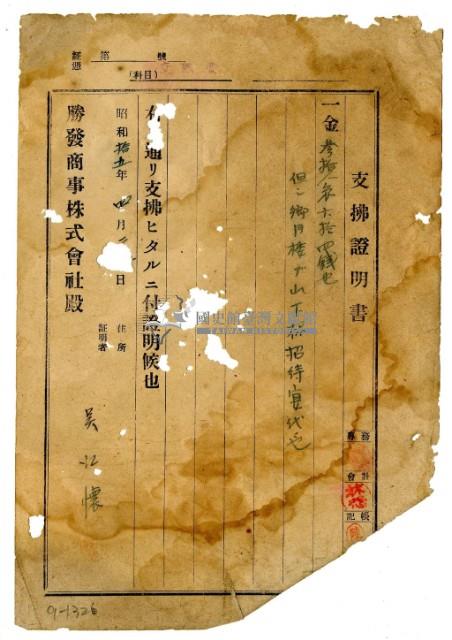 支拂證明書
一金 參拾 六拾四錢也
但シ
招待宴代也
右 通リ支拂ヒタルニ付證明候也
昭和拾五年四月 日
住所
證明者
吳江懷
勝發商事株式會社殿
証憑
第 號
(科目)
務
會計
記帳
國史館臺灣文獻館
9-1326